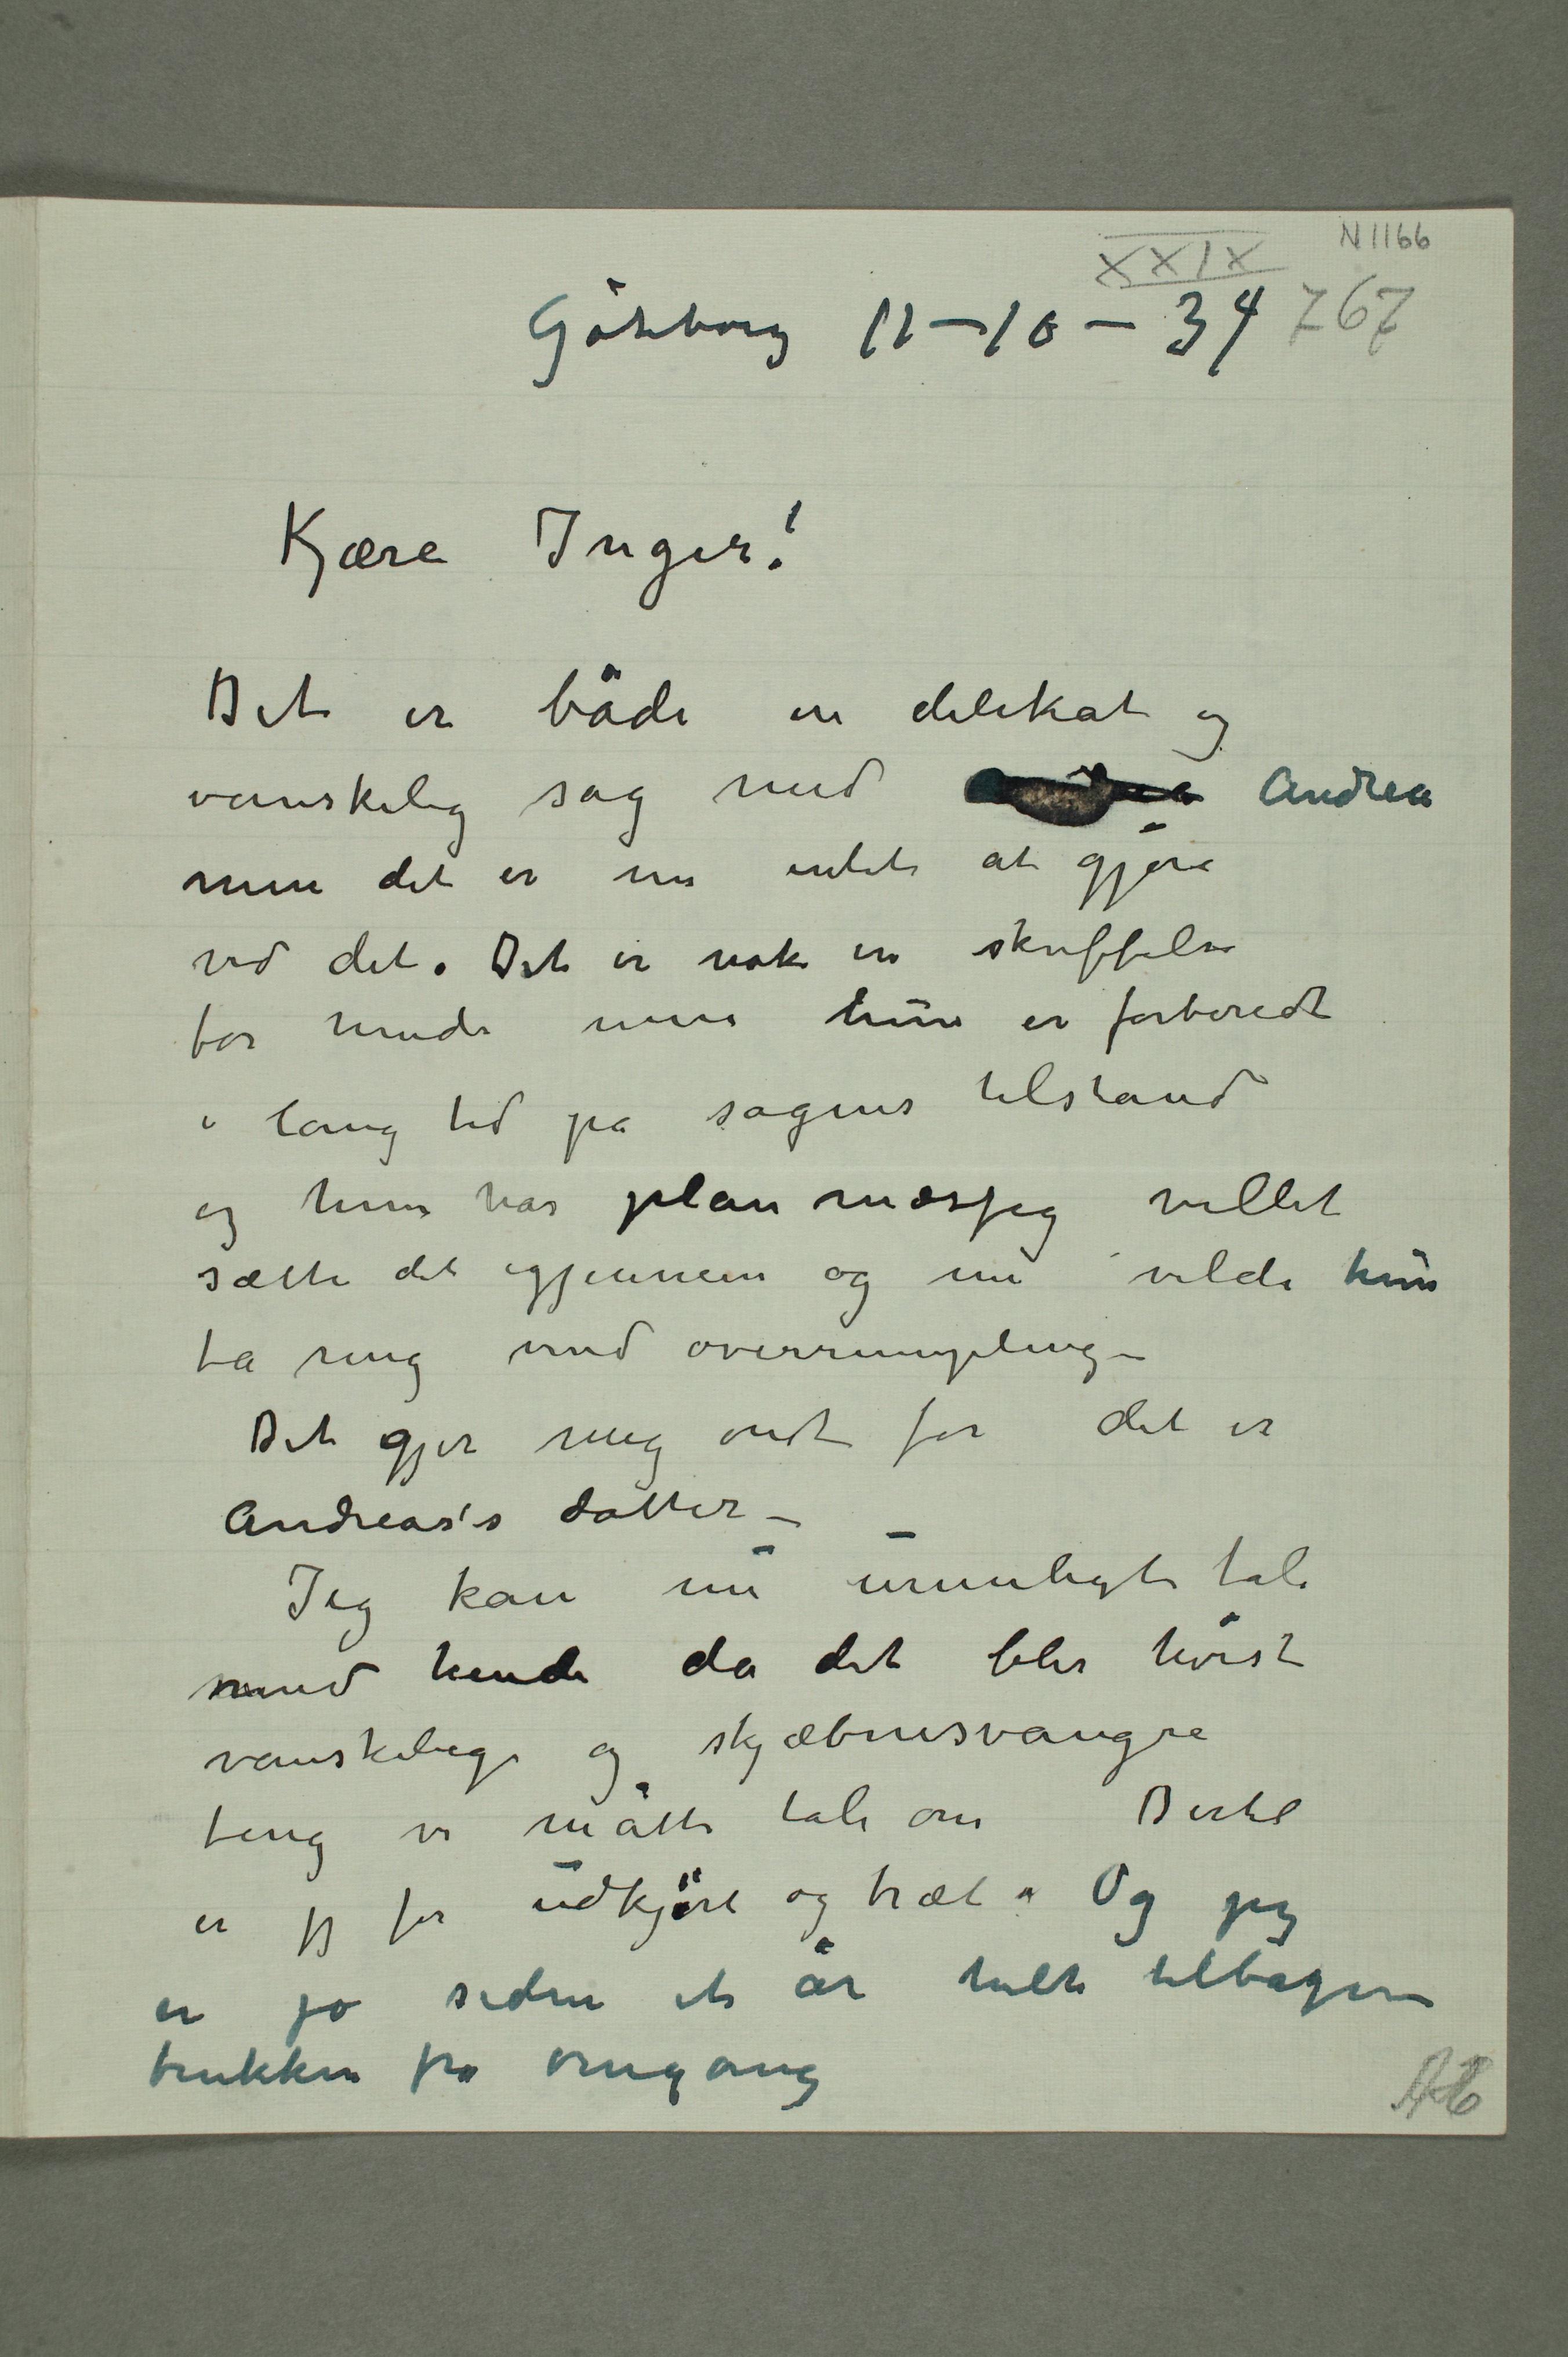 N1166
XXIX
Göteborg 11-10-34 767
Kjære Inger!
Det er både en delikat og
vanskelig sag med Andrea
men det er nu intet at gjøre
ved det. Det er nok en skuffelse
for hende men hun er forberedt
i lang tid på sagens tilstand
og hun har planmæssig villet
sætte det igjennem og nu vilde hun
ta mig med overrumpling –
Det gjør mig ondt for det er
Andreas's datter –
Jeg kan nu umuligt tale
med hende da det blir høist
vanskelige og skjæbnesvangre
ting vi måtte tale om Dertil
er jeg for udkjørt og træt. Og jeg
er jo siden et år helt tilbagen
trukken fra omgang